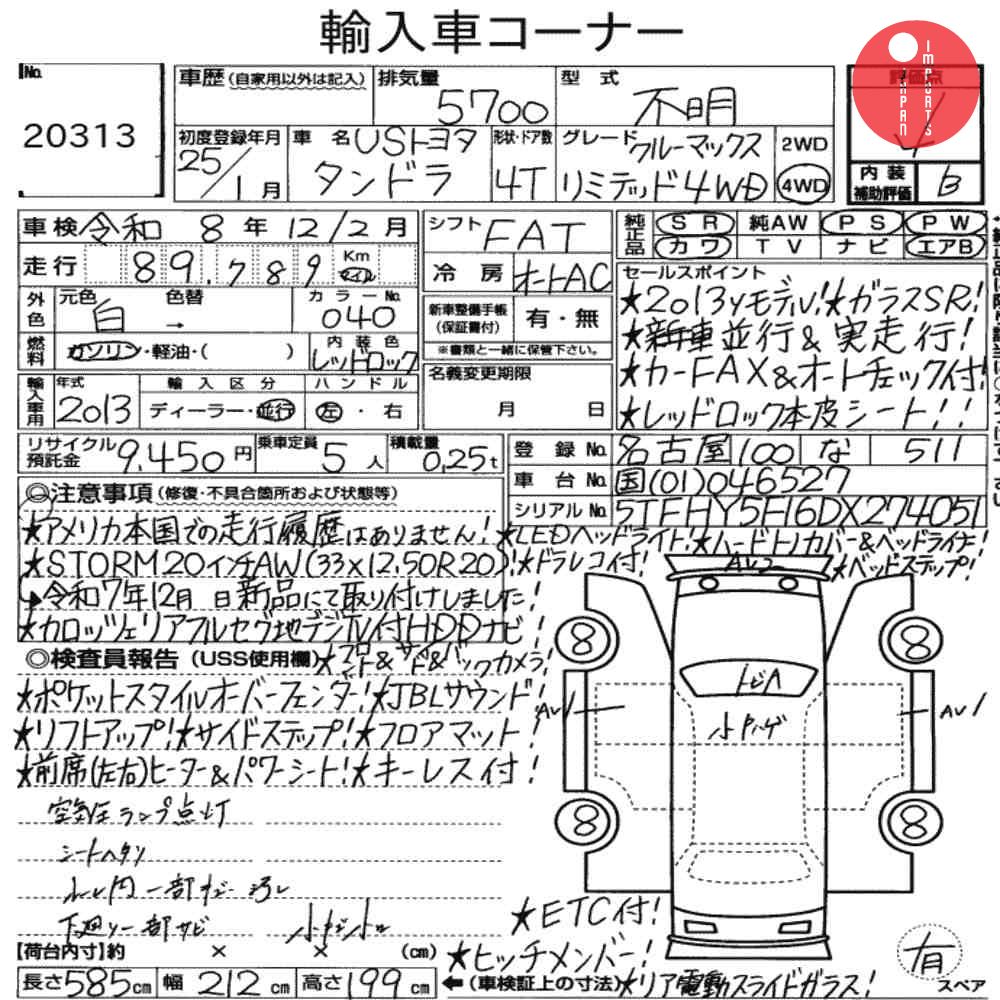 輸入車コーナー
JAPAN IMPORTS
No. 20313
車歴 (自家用以外は記入) 排気量 5700 型式 不明
評価点 4
初度登録年月 25/1月 車名 USトヨタ タンドラ 形状・ドア数 4T グレード クルーマックス リミテッド4WD 2WD 4WD
内装補助評価 B
車検 令和 8年 12/2月
シフト FAT
純正品 SR 純AW PS PW
カワ TV ナビ エアB
走行 89,789 Km マイル
冷房 オートAC
セールスポイント
★2013yモデル!★ガラスSR!
外色 元色 白 色替 → カラーNo. 040
新車整備手帳 (保証書付) 有・無
※書類と一緒に保管下さい。
★新車並行&実走行!
燃料 ガソリン・軽油・( ) 内装色 レッドロック
名義変更期限 月 日
★カーFAX&オートチェック付!
輸入車用 年式 2013 輸入区分 ディーラー・並行 ハンドル 左・右
★レッドロック本皮シート!!
リサイクル預託金 9,450円 乗車定員 5人 積載量 0.25t
登録No. 名古屋 100 な 511
車台No. 国(01)046527
シリアルNo. 5TFHY5F16DX274051
◎注意事項 (修復・不具合箇所および状態等)
★アメリカ本国での走行履歴はありません!
★LEDヘッドライト!★ハードトノカバー&ベッドライナー!
★STORM20インチAW(33×12.50R20)!
★ドラレコ付!
★ベッドステップ!
↳令和7年12月 日新品にて取り付けしました!
★カロッツェリアフルセグ地デジTV付HDDナビ!
◎検査員報告 (USS使用欄)
★フロント&サイド&バックカメラ!
★ポケットスタイルオーバーフェンダー!★JBLサウンド!
★リフトアップ!★サイドステップ!★フロアマット
★前席(左右)ヒーター&パワーシート!★キーレス付!
空気圧ランプ点灯
シートヘタリ
一部 汚レ
下廻り一部サビ
AV2
トビA
AV1
AV1
8
8
8
8
★ETC付!
★ヒッチメンバー!
★リア電動スライドガラス!
【荷台内寸】約 × × (cm)
長さ585cm 幅212cm 高さ199cm ←(車検証上の寸法)
有
スペア